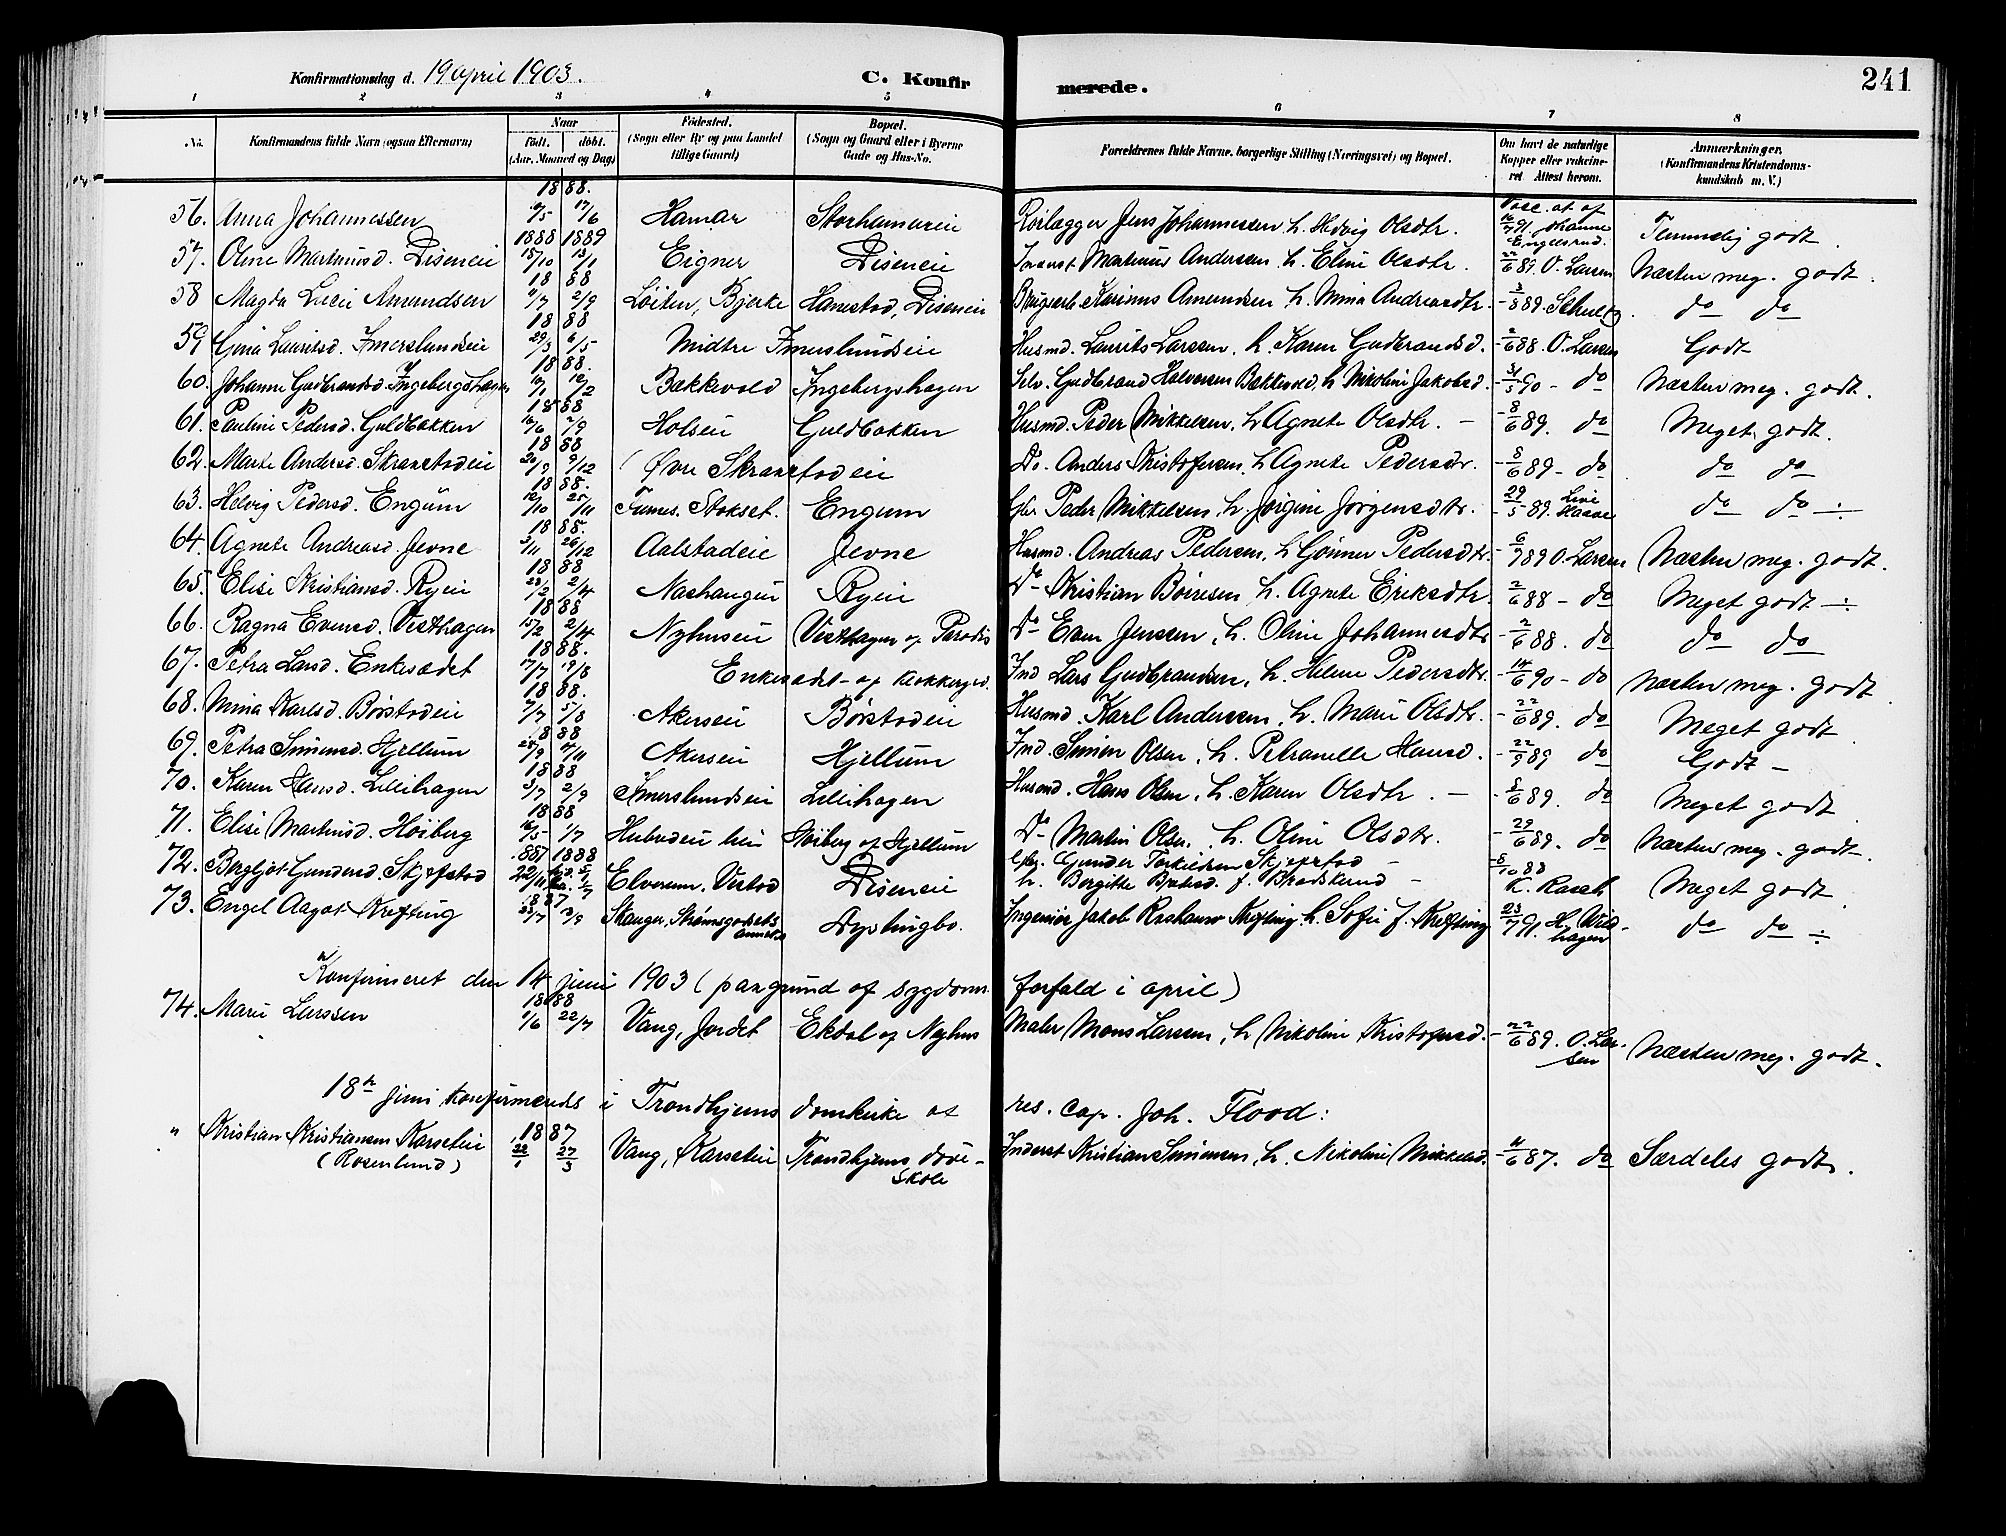 Konfirmationsdag d. 19 april 1903. C. Konfirmerede. 241
1 2 3 4 5 6 7 8
No. Konfirmandens fulde Navn (ogsaa Efternavn) Naar født. døbt. (Aar, Maaned og Dag) Fødested. (Sogn eller By og paa Landet tillige Gaard) Bopæl. (Sogn og Gaard eller i Byerne Gade og Hus-No. Forældrenes fulde Navne, borgerlige Stilling (Næringsvei) og Bopæl. Om havt de naturlige Kopper eller vakcineret. Attest herom. Anmærkninger. (Konfirmandens Kristendomskundskab m. V.)
1888.
56. Anna Johannessen /5 17/6 Hamar Storhamareie Rørlægger Jens Johannessen h. Hedvig Olsdtr. Vacc. at. af 16/7 91. Johanne Engelsrud. Temmelig godt.
1888 1889
57. Oline Martinusd. Diseneie 15/10 13/1 Eigner Diseneie Martinus Andersen h. Eline Olsdtr. 22/6 89. O. Larsen Næsten meg. godt.
1888
58 Magda Lucie Amundsen /7 2/9 Løiten, Bjerke Hanestad, Diseneie Karinus Amundsen h. Mina Andreasdtr. - 3/8 89. Schultz. do do
1888
59 Gina Lauritsd. Imerslundeie 29/3 6/5 Midtre Imerslundeie Husmd. Laurits Larsen. h. Karen Gudbrandsd. - 2/6 88. O. Larsen Godt
1888.
60. Johanne Gudbrandsd. Ingebergshagen 10/1 12/2 Bækkevold Ingebergshagen Selv. Gudbrand Halvorsen Bækkevold, h. Nikoline Jakobsd. - 31/5 90 - do Næsten meg. godt.
1888
61. Pauline Pedersd. Guldbakken 16/6 /9 Holseie Guldbakken Husmd. Peder Mikkelsen, h Agnete Olsdtr. - 8/6 89. do Meget godt.
1888
62. Marte Andersd. Skranstadeie 20/9 9/12 Øvre Skranstadeie Do. Anders Kristofersen, h Agnete Pedersdtr. - 8/6 89 - do do do
1888.
63. Helvig Pedersd. Engum 12/10 25/11 Furnes. Stokset. Engum Gbr. Peder Mikkelsen, h. Jørgine Jørgensdtr. - 29/5 89. do do ÷
1888.
64. Agnete Andreasd. Jevne 3/11 26/12 Aalstadeie Jevne Husmd. Andreas Pedersen, h Gunner Pedersdtr. - 6/7 89 O. Larsen Næsten meg. godt.
1888
65. Elise Kristiansd. Ryeie 23/2 2/4 Nashaugeie Ryeie Do - Kristian Børresen h. Agnete Eriksdtr. - 2/6 88 - do Meget godt ÷
1888
66. Ragna Evensd. Vesthagen 15/2 2/4 Nyhuseie Vesthagen og Paradis Do - Even Jenssen, h. Oline Johannesdtr - 2/6 88. do do do
1888.
67. Petra Larsd. Enkesædet 17/7 19/8 Enkesædet - og Klokkergd. Ind Lars Gudbrandsen, h. Helene Pedersdtr. - 14/6 90 - do Næsten meg. godt
1888.
68. Mina Karlsd. Børstadeie /7 5/8 Akerseie Børstadeie Husmd. Karl Andersen, h. Marie Olsdtr. - 22/6 89. do Meget godt
1888
69. Petra Simensd. Hjellum 25/9 /11 Akerseie Hjellum Ind. Simen Olsen, h. Petranelle Hansd. - 22/9 89 do Godt -
1888
70. Karen Hansd. Lillihagen 3/7 2/9 Imerslundseie Lillihagen Husmd. Hans Olsen, h. Karen Olsdtr. - - 8/6 89. do Meget godt
1888
71. Elise Martinsd. Høiberg 16/5 1/7 Høiberg og Hjellum Do - Martin Olsen, h. Oline Olsdtr. - 29/6 89. do Næsten meg. godt.
1887 1888
72. Bergljot Gundersd. Skjefstad 22/11 Elverum. Vestad Diseneie Gbr. Gunder Torkildsen Skjefstad - h. Borgitte f. Bradskerud - - 5/10 88 K. Meget godt
1887
73. Engel Aagot Krefting 23/7 /9 Stange, Strømsgodsets annex Dystingbo. Ingeniør Jakob Rashauw Krefting h. Sofie f. Krefting 23/7 91. H. Wilhagen do do ÷
Konfirmeret den 14 juni 1903 (paa grund af sygdomsforfald i april)
1888
74. Marie Larssen 1/6 22/7 Vang, Jordet Ekdal af Nyhus Maler Mons Larsen, h Nikoline Kristofersd. - 22/6 89. O. Larsen Næsten meg. godt.
18de juni konfirmeredes i Trondhjems domkirke af res. cap. Joh. Flood:
1887
" Kristian Kristiansen Karseteie (Rosenlund) 22/1 27/3 Vang, Karseteie Trondhjems døve-skole Inderst Kristian Simensen, h. Nikoline Mikkelsd. - 11/6 87. do Særdeles godt.